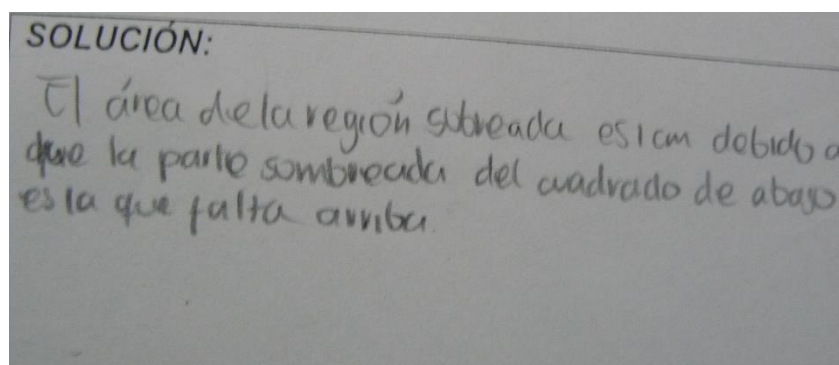 SOLUCIÓN:
El área dela región sobreada es 1cm debido a
que la parte sombreada del cuadrado de abajo
es la que falta arriba.